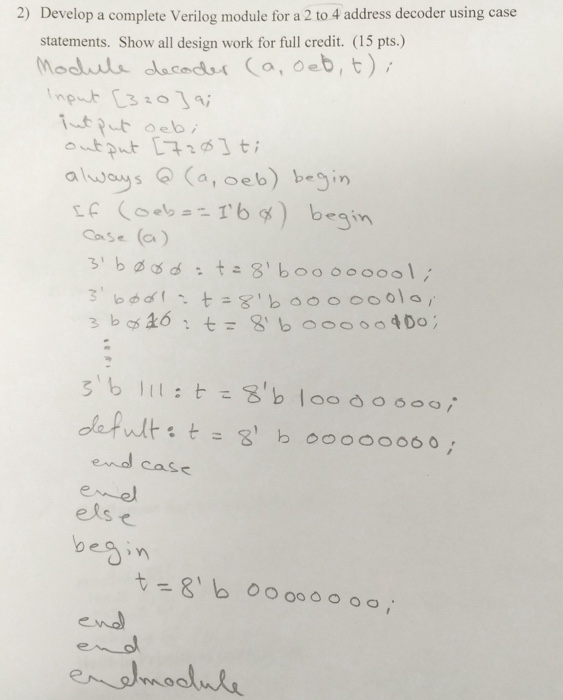 2) Develop a complete Verilog module for a 2 to 4 address decoder using case
statements. Show all design work for full credit. (15 pts.)
Module decoder (a, oeb, t);
Input [3:0] a;
intput oeb;
output [7:0] t;
always @ (a, oeb) begin
If (oeb == 1'b0) begin
Case (a)
3'b000 : t = 8'b00000001;
3'b001 : t = 8'b00000010;
3 b010 : t = 8'b00000100;
⋮
3'b 111 : t = 8'b 10000000;
defult : t = 8' b 00000000;
end case
end
else
begin
t = 8'b 00000000;
end
end
endmodule